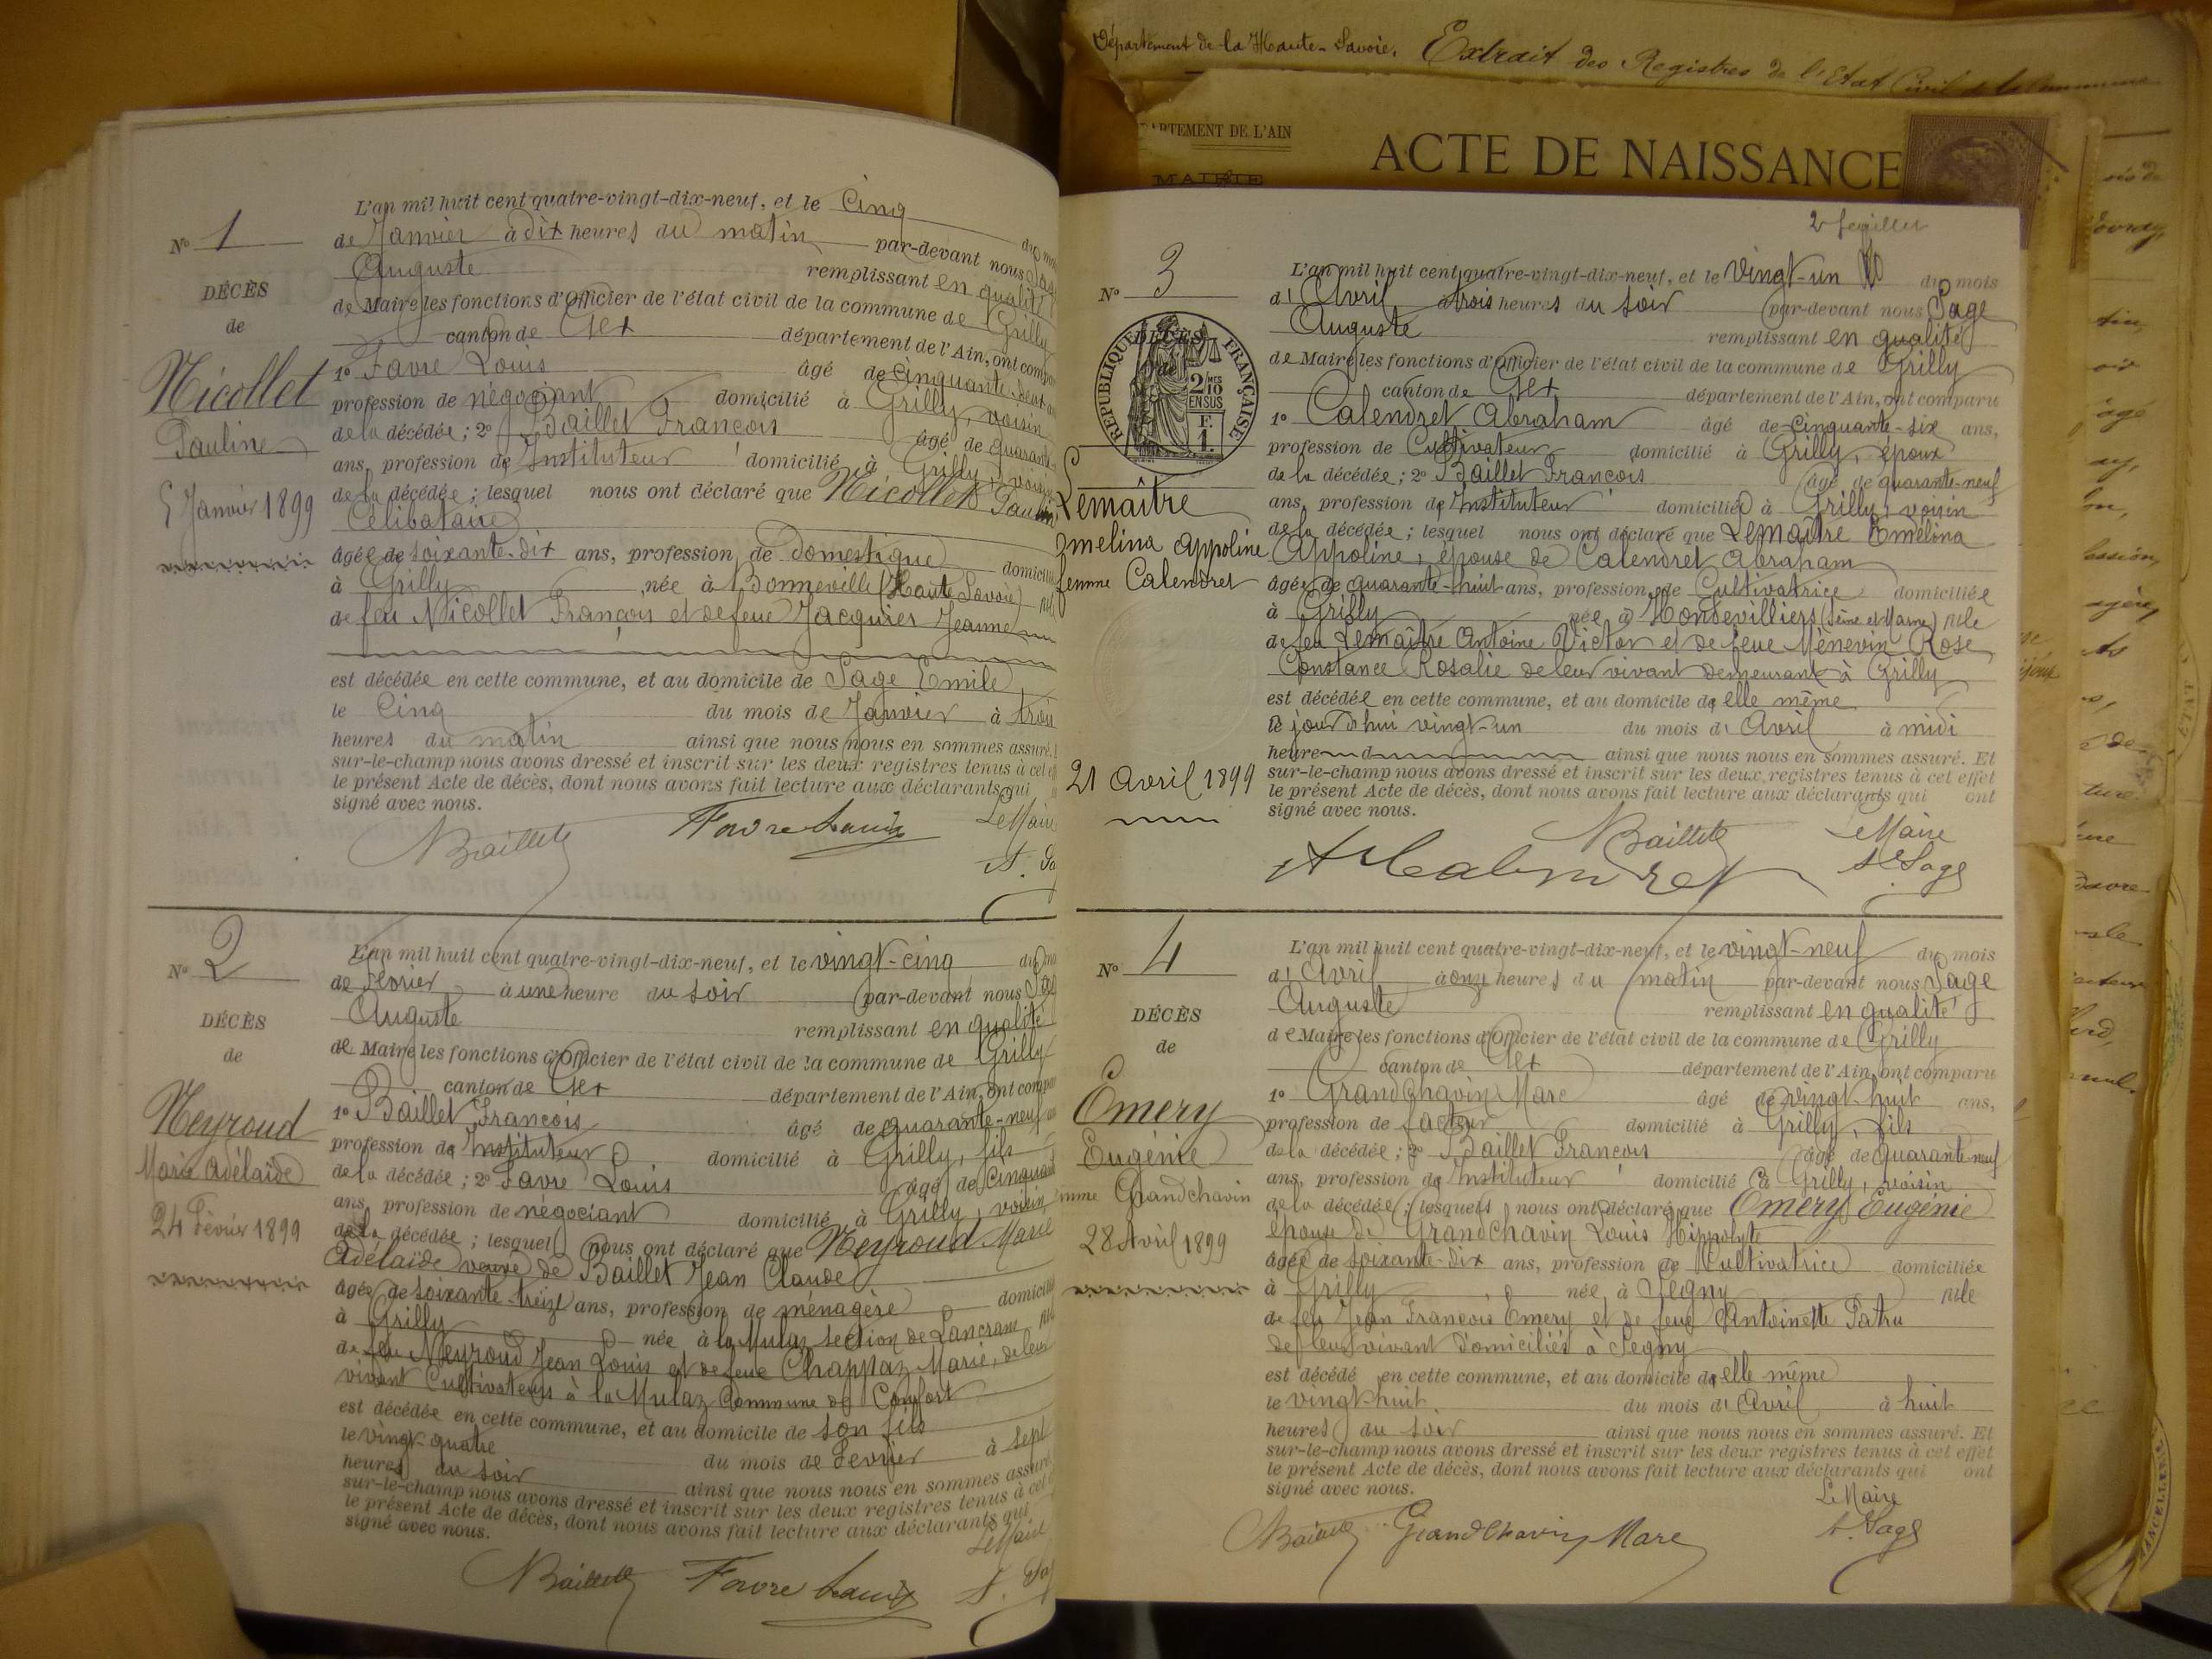 Département de la Haute-Savoie. Extrait des Registres de l'Etat Civil de la Commune
DÉPARTEMENT DE L'AIN
ACTE DE NAISSANCE
MAIRIE
L'an mil huit cent quatre-vingt-dix-neuf, et le Cinq
N° 1
de Janvier à dix heures du matin par-devant nous Sage
Auguste remplissant en qualité
DÉCÈS
de Maire les fonctions d'Officier de l'état civil de la commune de Grilly
de
canton de Gex département de l'Ain, ont comparu
1° Favre Louis âgé de Cinquante-deux
Nicollet
profession de négociant domicilié à Grilly, voisin
de la décédée; 2° Baillet François âgé de quarante
Pauline
ans, profession de Instituteur domicilié à Grilly, voisin
de la décédée; lesquel nous ont déclaré que Nicollet Pauline
5 Janvier 1899
Célibataire
âgée de soixante-dix ans, profession de domestique domicil
à Grilly née à Bonneville (Haute Savoie)
de feu Nicollet François et de feue Jacquier Jeanne
est décédée en cette commune, et au domicile de Sage Emile
le Cinq du mois de Janvier à trois
heures du matin ainsi que nous nous en sommes assuré.
sur-le-champ nous avons dressé et inscrit sur les deux registres tenus à cet
le présent Acte de décès, dont nous avons fait lecture aux déclarants qui
signé avec nous.
Le Maire
Baillet Favre Louis
A. Sa
L'an mil huit cent quatre-vingt-dix-neuf, et le vingt-cinq du
N° 2
de Fevrier à une heure du soir par-devant nous
Auguste remplissant en qualité
DÉCÈS
de Maire les fonctions d'Officier de l'état civil de la commune de Grilly
de
canton de Gex département de l'Ain, ont comparu
1° Baillet François âgé de quarante-neuf
Neyroud
profession de Instituteur domicilié à Grilly, fils
Marie Adélaïde
de la décédée; 2° Favre Louis âgé de Cinquante
ans, profession de négociant domicilié à Grilly, voisin
24 Février 1899
de la décédée; lesquel nous ont déclaré que Neyroud Marie
Adélaïde veuve de Baillet Jean Claude
âgée de soixante-treize ans, profession de ménagère domicil
à Grilly née à la Mulaz section de Lancrans
de feu Neyroud Jean Louis et de feue Chappaz Marie, de leur
vivant Cultivateurs à la Mulaz Commune de Confort
est décédée en cette commune, et au domicile de son fils
le vingt-quatre du mois de Fevrier à sept
heures du soir ainsi que nous nous en sommes assuré
sur-le-champ nous avons dressé et inscrit sur les deux registres tenus à cet
le présent Acte de décès, dont nous avons fait lecture aux déclarants qui
signé avec nous.
Le Maire
Baillet Favre Louis
2e feuillet
L'an mil huit cent quatre-vingt-dix-neuf, et le Vingt-un du mois
N° 3
d' Avril à trois heures du soir par-devant nous Sage
Auguste remplissant en qualité
DÉCÈS
de
RÉPUBLIQUE FRANÇAISE
2/10 MES
EN SUS
F. 1.
de Maire les fonctions d'Officier de l'état civil de la commune de Grilly
canton de Gex département de l'Ain, ont comparu
1° Calendret Abraham âgé de Cinquante-six ans,
profession de Cultivateur domicilié à Grilly, époux
de la décédée; 2° Baillet François âgé de quarante-neuf
Lemaître
ans, profession de Instituteur domicilié à Grilly, voisin
de la décédée; lesquel nous ont déclaré que Lemaître Emélina
Emelina Appoline
Appoline, épouse de Calendret Abraham
femme Calendret
âgée de quarante-huit ans, profession de Cultivatrice domiciliée
à Grilly née à Hondevilliers (Seine et Marne) fille
de feu Lemaître Antoine Victor et de feue Ménevin Rose
Constance Rosalie de leur vivant demeurant à Grilly
est décédée en cette commune, et au domicile de elle même
le jour d'hui vingt-un du mois d' Avril à midi
heure d ainsi que nous nous en sommes assuré. Et
21 Avril 1899
sur-le-champ nous avons dressé et inscrit sur les deux registres tenus à cet effet
le présent Acte de décès, dont nous avons fait lecture aux déclarants qui ont
signé avec nous.
Baillet Le Maire
A Calendret A. Sage
L'an mil huit cent quatre-vingt-dix-neuf, et le vingt-neuf du mois
N° 4
d' Avril à onze heures du matin par-devant nous Sage
Auguste remplissant en qualité
DÉCÈS
de Maire les fonctions d'Officier de l'état civil de la commune de Grilly
de
canton de Gex département de l'Ain, ont comparu
1° Grandchavin Marc âgé de vingt-huit ans,
Emery
profession de facteur domicilié à Grilly, fils
Eugénie
de la décédée; 2° Baillet François âgé de Quarante-neuf
ans, profession de Instituteur domicilié à Grilly, voisin
femme Grandchavin
de la décédée; lesquels nous ont déclaré que Emery Eugénie
épouse de Grandchavin Louis Hippolyte
28 Avril 1899
âgée de soixante-dix ans, profession de Cultivatrice domiciliée
à Grilly née à Segny fille
de feu Jean François Emery et de feue Antoinette Patru
de leur vivant domiciliés à Segny
est décédé en cette commune, et au domicile de elle même
le vingt-huit du mois d' Avril à huit
heures du soir ainsi que nous nous en sommes assuré. Et
sur-le-champ nous avons dressé et inscrit sur les deux registres tenus à cet effet
le présent Acte de décès, dont nous avons fait lecture aux déclarants qui ont
signé avec nous.
Le Maire
Baillet Grandchavin Marc A. Sage